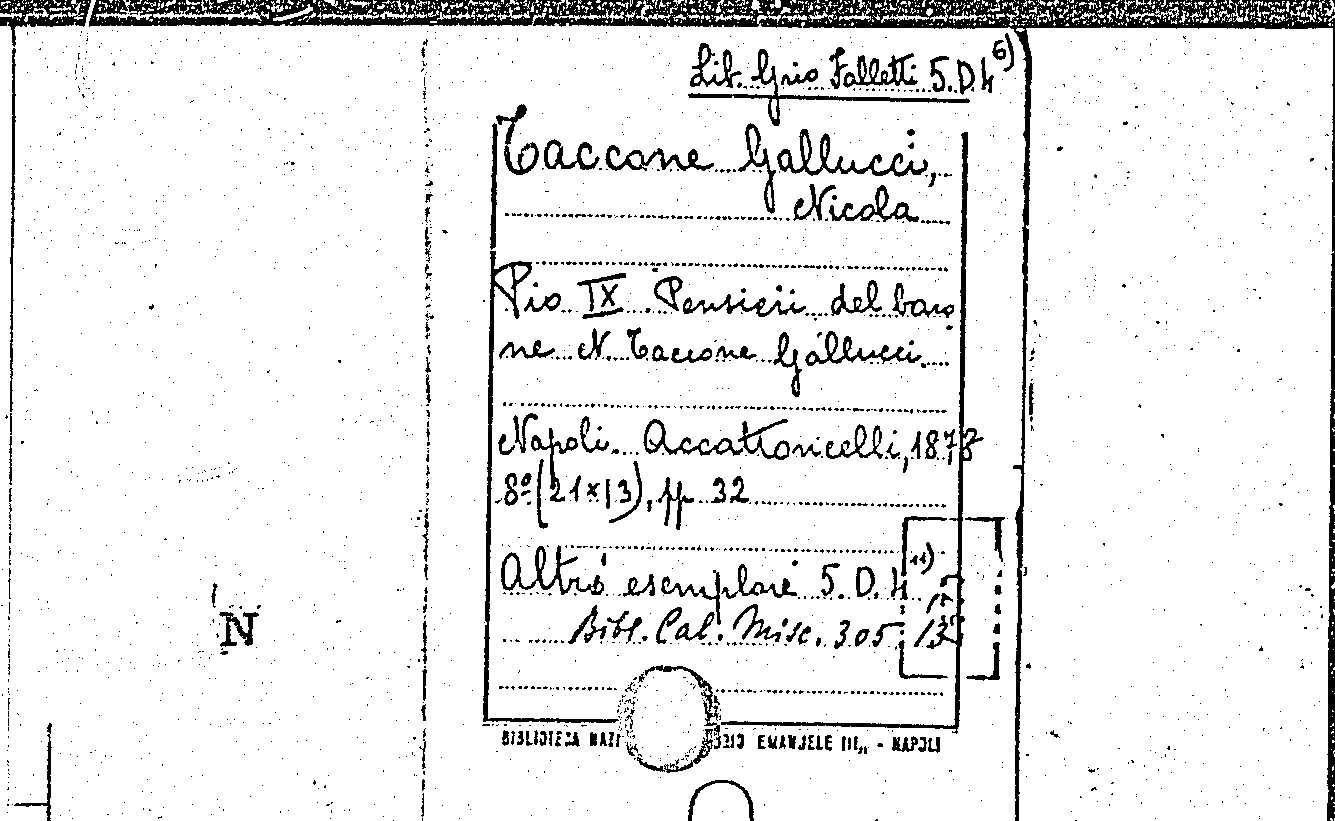 Lib. Grio Falletti 5.D.4 6)
Taccone Gallucci,
Nicola
Pio IX. Pensieri del baro
ne N. Taccone Gallucci
Napoli. Accattoncelli, 1878
8º (21x13), pp 32
Altro esemplare 5. D. 4 11)
Bibl. Cal. Misc. 305
N
BIBLIOTECA NAZI ORIO EMANUELE III,, - NAPOLI